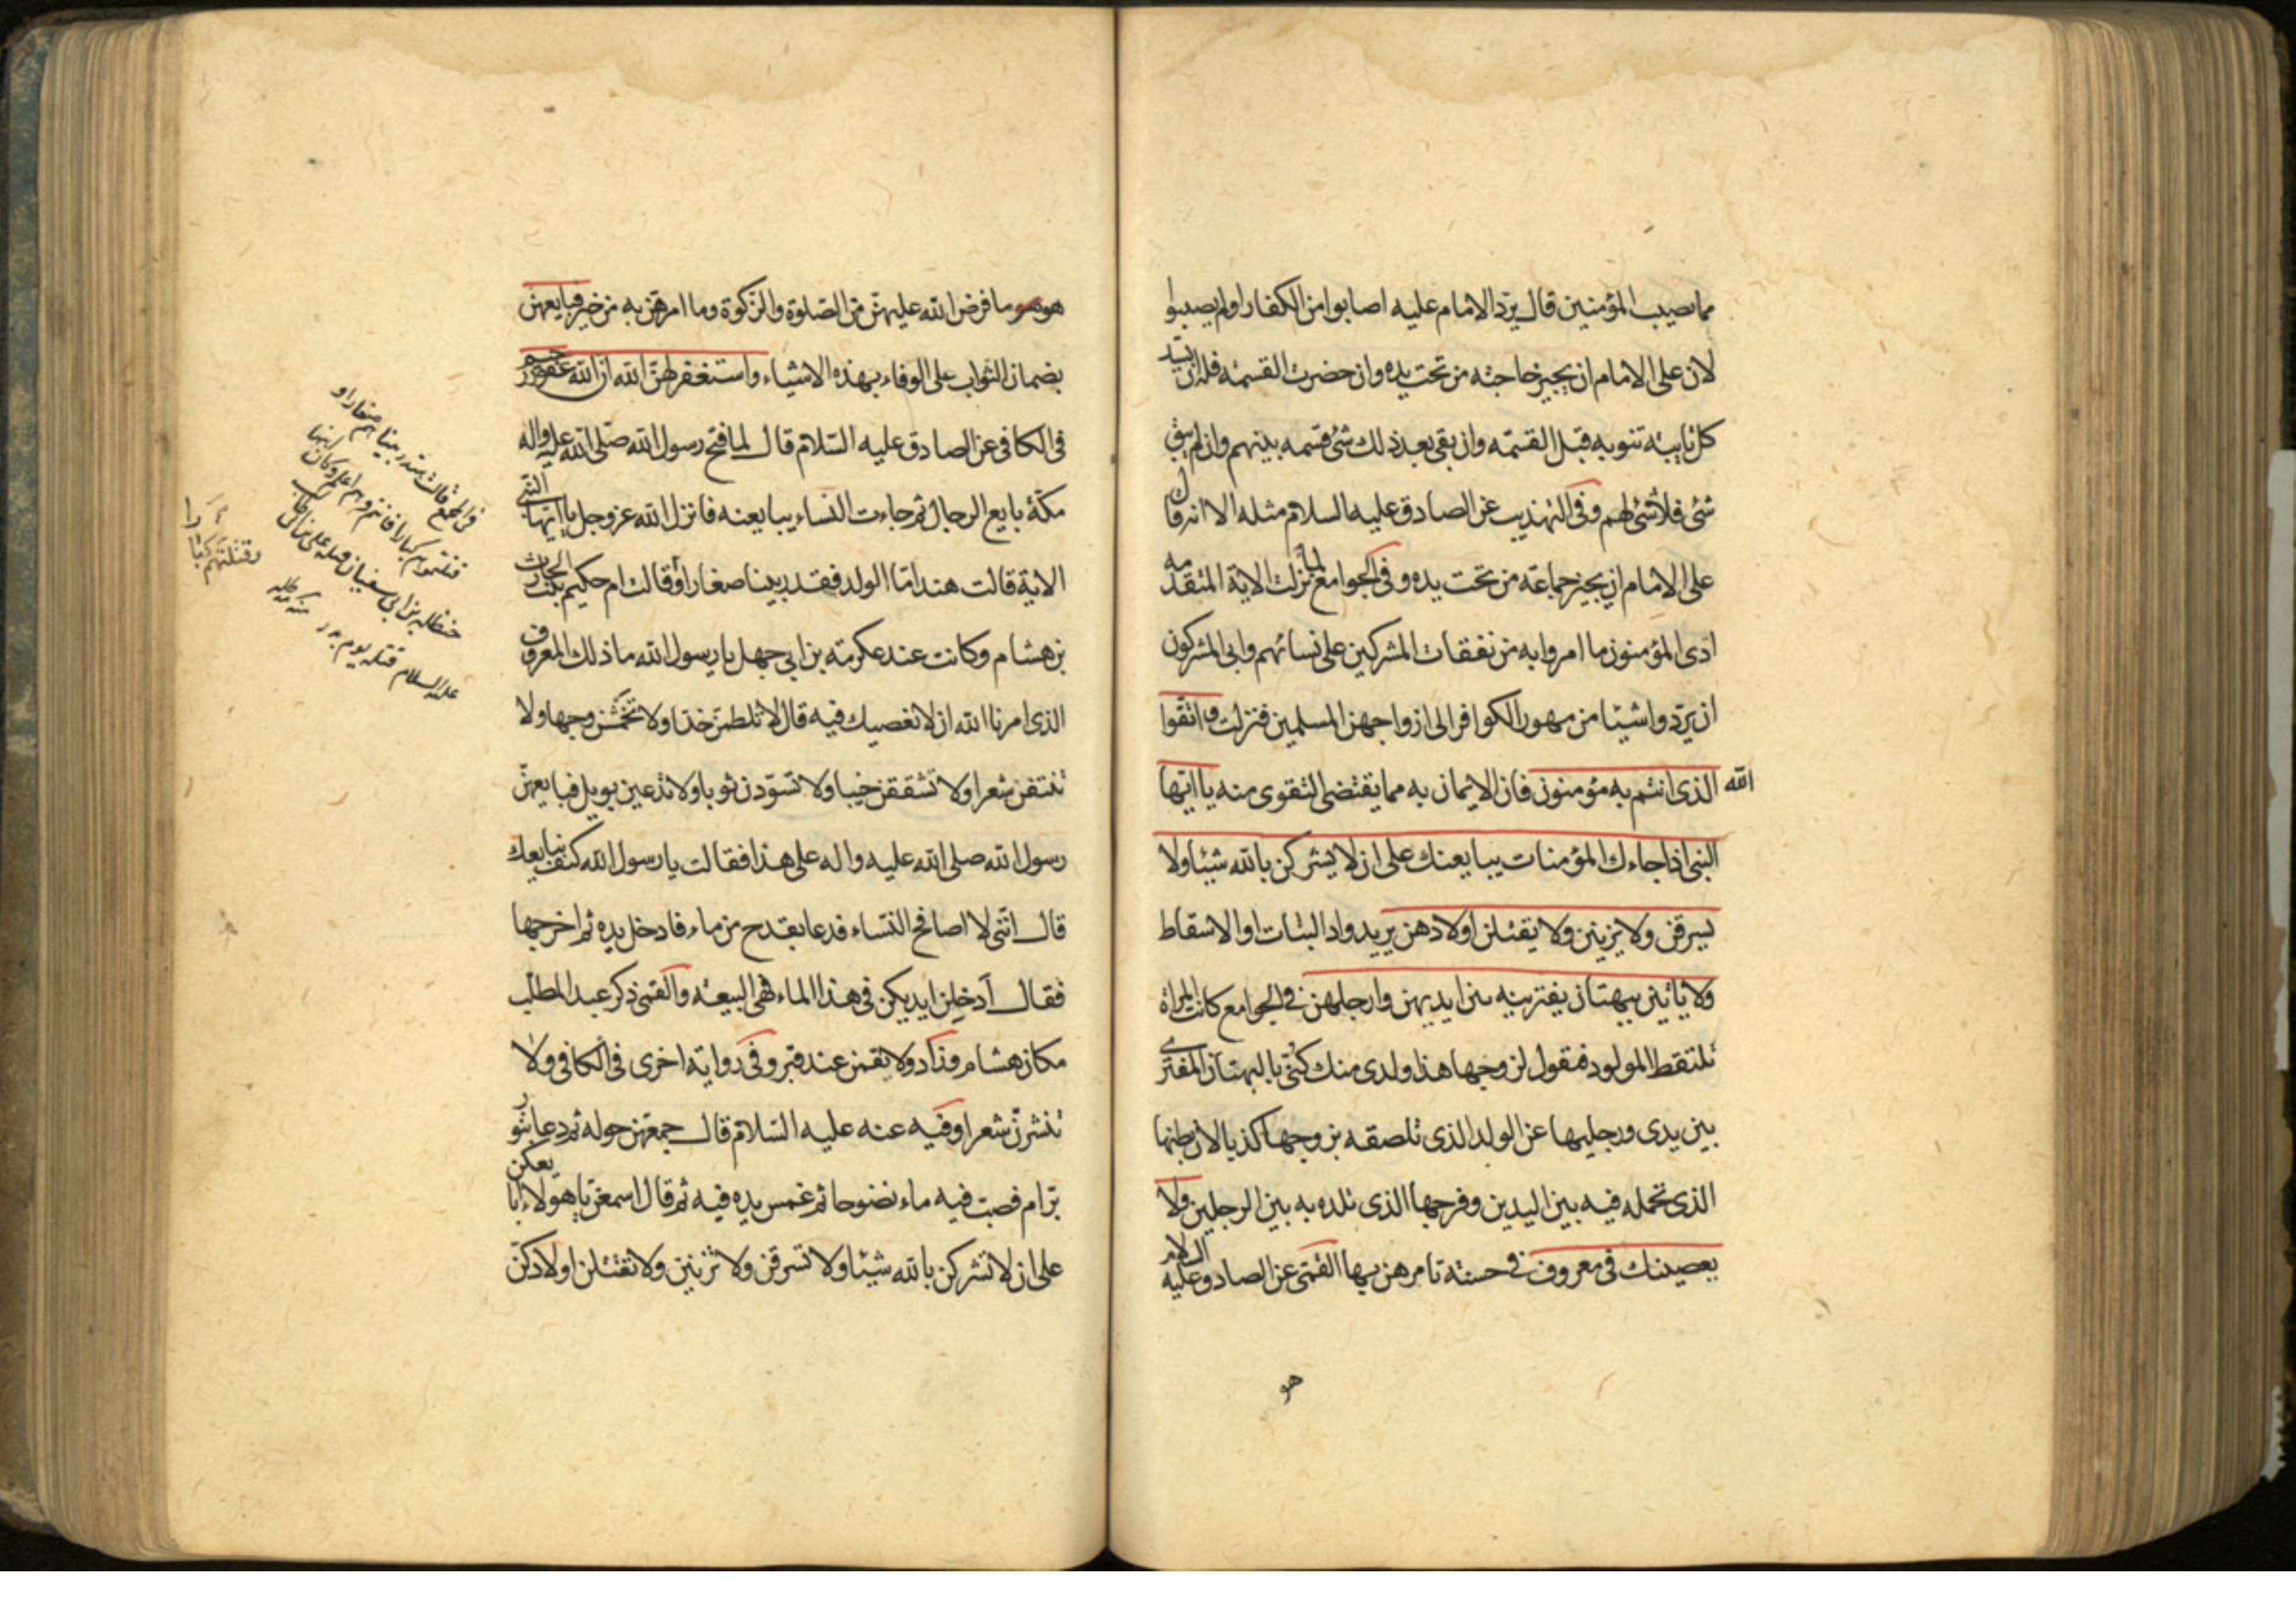 مما يصيب المؤمنين قال يردّ الامام عليه اصابوا من الكفار او لم يصيبوا
لان على الامام ان يجيز حاجته من تحت يده وان حضرت القسمة فله ان يسدّ
كل نايبة تنوبه قبل القسمة وان بقى بعد ذلك شئ قسمه بينهم وان لم يبق
شئ فلا شئ لهم وفى التهذيب عن الصادق عليه السلام مثله الا انه قال
على الامام ان يجيز جماعة من تحت يده وفى الجوامع لما نزلت الاية المتقدمة
ادى المؤمنون ما امروا به من نفقات المشركين على نسائهم وابى المشركون
ان يردّوا شيئا من مهور الكوافر الى ازواجهن المسلمين فنزلت واتقوا
الله الذى انتم به مؤمنون فان الايمان به مما يقتضى التقوى منه يا ايها
النبى اذا جاءك المؤمنات يبايعنك على ان لا يشركن بالله شيئا ولا
يسرقن ولا يزنين ولا يقتلن اولادهن يريد واد البنات او الاسقاط
ولا ياتين ببهتان يفترينه بين ايديهن وارجلهن فى الجوامع كانت المراة
تلتقط المولود فتقول لزوجها هذا ولدى منك كنى بالبهتان المفترى
بين يدى ورجليها عن الولد الذى تلصقه بزوجها كذبا لان بطنها
الذى تحمله فيه بين اليدين وفرجها الذى تلده به بين الرجلين ولا
يعصينك فى معروف فى حسنة تامرهن بها القمّى عن الصادق عليه السلام
هو
هو ما فرض الله عليهن من الصلوة والزكوة وما امرهن به من خير فبايعهن
بضمان الثواب على الوفاء بهذه الاشياء واستغفر لهن الله ان الله غفور رحيم
فى الكافى عن الصادق عليه السلام قال لما فتح رسول الله صلى الله عليه واله
مكة بايع الرجال ثم جاءت النساء يبايعنه فانزل الله عز وجل يا ايها النبى
الاية قالت هند امّا الولد فقد ربينا صغارا وقالت ام حكيم بنت الحارث
بن هشام وكانت عند عكرمة بن ابى جهل يا رسول الله ما ذلك المعروف
الذى امرنا الله ان لا نعصيك فيه قال لا تلطمن خدّا ولا تخمشن وجها ولا
تنتفن شعرا ولا تشققن جيبا ولا تسوّدن ثوبا ولا تدعين بويل فبايعهنّ
رسول الله صلى الله عليه واله على هذا فقالت يا رسول الله كيف نبايعك
قال انّنى لا اصافح النساء فدعا بقدح من ماء فادخل يده ثم اخرجها
فقال ادخلن ايديكن فى هذا الماء فهى البيعة والقمى ذكر عبد المطلب
مكان هشام وزاد ولا تقمن عند قبر وفى رواية اخرى فى الكافى ولا
تنشرنّ شعرا وفيه عنه عليه السلام قال جمعهن حوله ثم دعا بتور
برام فصب فيه ماء نضوحا ثم غمس يده فيه ثم قال اسمعن يا هؤلاء ابايعكن
على ان لا تشركن بالله شيئا ولا تسرقن ولا تزنين ولا تقتلن اولادكنّ
فى المجمع قالت هند ربيناهم صغارا و
قتلتموهم كبارا فانتم وهم اعلم وكان ابنها
حنظلة بن ابى سفيان قتله على بن ابى طالب
عليه السلام قتله يوم بدر
وقتلتهم كبارا